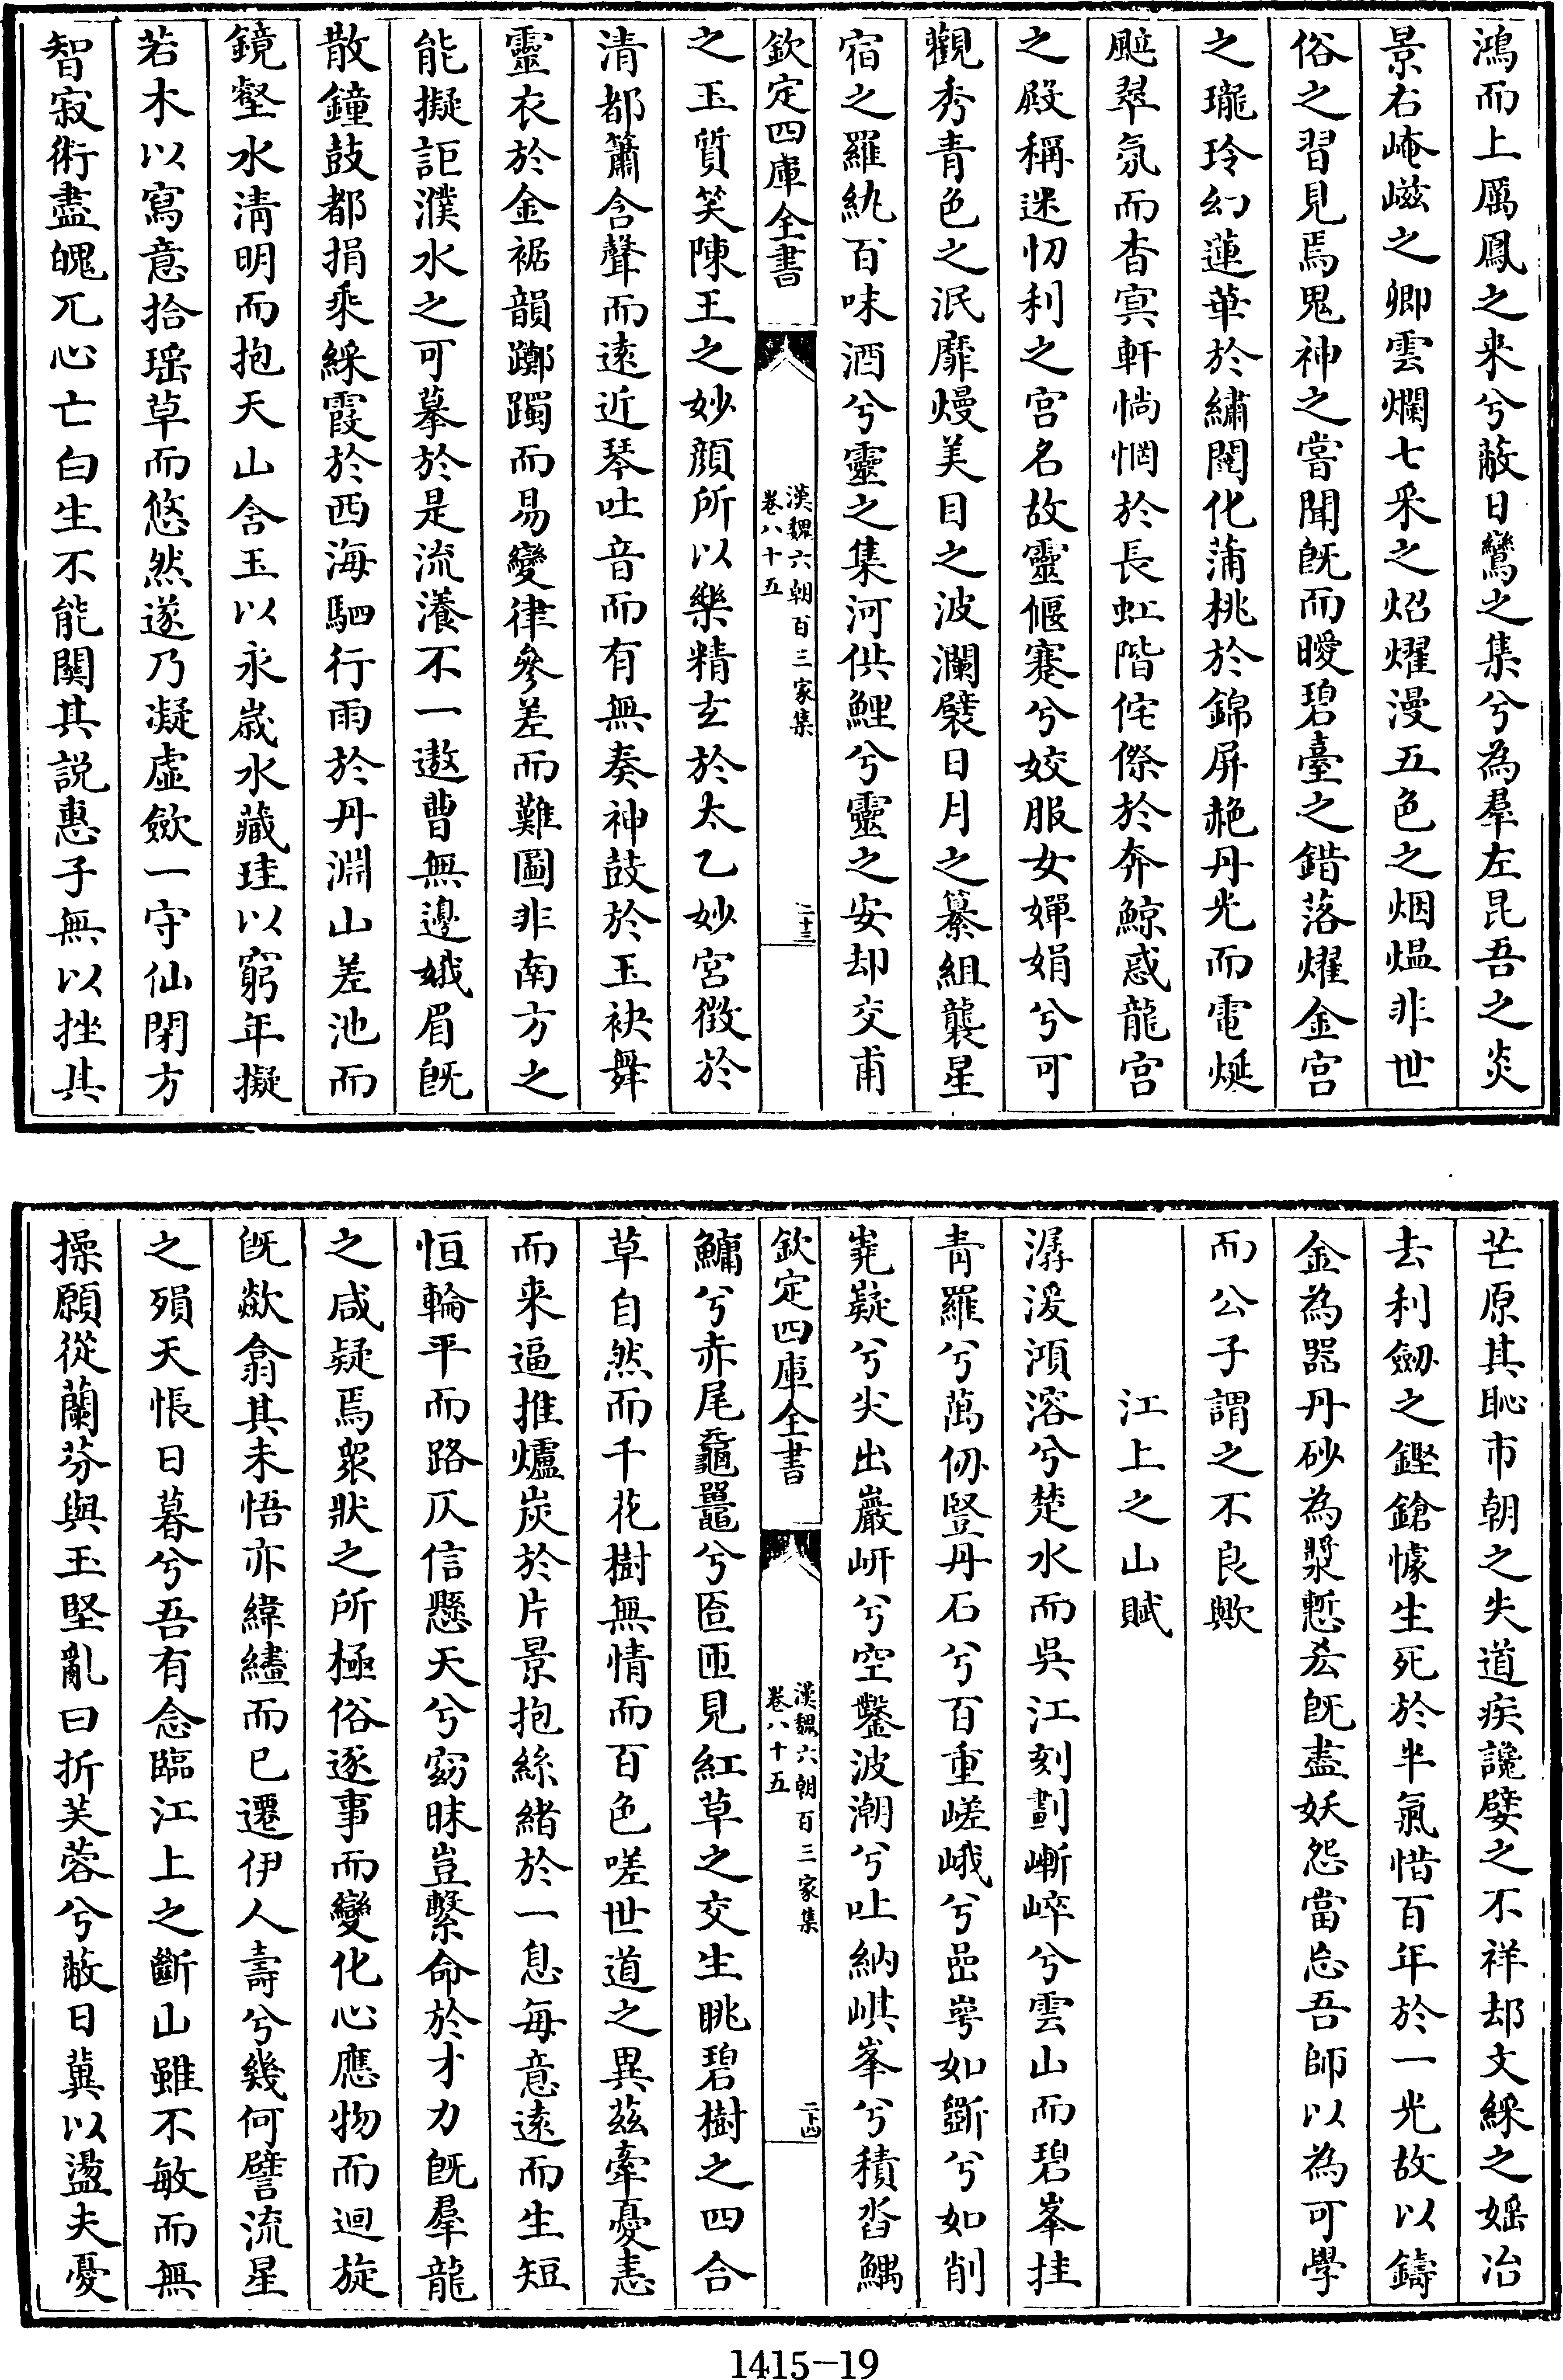 鴻而上厲鳳之来兮蔽日鸞之集兮為羣左昆吾之炎
景右崦嵫之卿雲爛七采之炤燿漫五色之烟熅非世
俗之習見焉鬼神之嘗聞既而曖碧臺之錯落燿金宫
之瓏玲幻蓮華於繡闥化蒲桃於錦屏赩丹光而電烻
颭翠氛而杳冥軒惝惘於長虹階侘傺於奔鯨惑龍宫
之殿稱迷忉利之宫名故靈偃蹇兮姣服女嬋娟兮可
觀秀青色之泯靡熳美目之波瀾襞日月之纂組襲星
宿之羅紈百味酒兮靈之集河供鯉兮靈之安却交甫
欽定四庫全書
漢魏六朝百三家集
卷八十五
二十三
之玉質笑陳王之妙顔所以樂精玄於太乙妙宮徴於
清都簫含聲而遠近琴吐音而有無奏神鼓於玉袂舞
靈衣於金裾韻躑躅而易變律參差而難圖非南方之
能擬詎濮水之可摹於是流瀁不一遨曹無邊娥眉既
散鐘鼓都捐乘綵霞於西海駟行雨於丹淵山差池而
鏡壑水清明而抱天山含玉以永歳水藏珪以窮年擬
若木以寫意拾瑶草而悠然遂乃凝虚斂一守仙閉方
智寂術盡魄兀心亡白生不能關其説惠子無以挫其
芒原其恥市朝之失道疾讒嬖之不祥却文綵之婬冶
去利劒之鏗鎗懅生死於半氣惜百年於一光故以鑄
金為器丹砂為漿慙厺既盡妖怨當忘吾師以為可學
而公子謂之不良歟
江上之山賦
潺湲澒溶兮楚水而吳江刻劃嶄崒兮雲山而碧峯挂
青羅兮萬仞豎丹石兮百重嵯峨兮嵒崿如斵兮如削
嶤嶷兮尖出巖岍兮空鑿波潮兮吐納㟢峯兮積沓鰅
欽定四庫全書
漢魏六朝百三家集
卷八十五
二十四
鱅兮赤尾龜鼉兮匼匝見紅草之交生眺碧樹之四合
草自然而千花樹無情而百色嗟世道之異兹牽憂恚
而来逼推爐炭於片景抱絲緒於一息每意遠而生短
恒輪平而路仄信懸天兮窈昧豈繫命於才力既羣龍
之咸疑焉衆狀之所極俗逐事而變化心應物而迴旋
既歘翕其未悟亦緯繣而已遷伊人壽兮幾何譬流星
之殞天悵日暮兮吾有念臨江上之斷山雖不敏而無
操願從蘭芬與玉堅亂曰折芙蓉兮蔽日冀以盪夫憂
1415-19